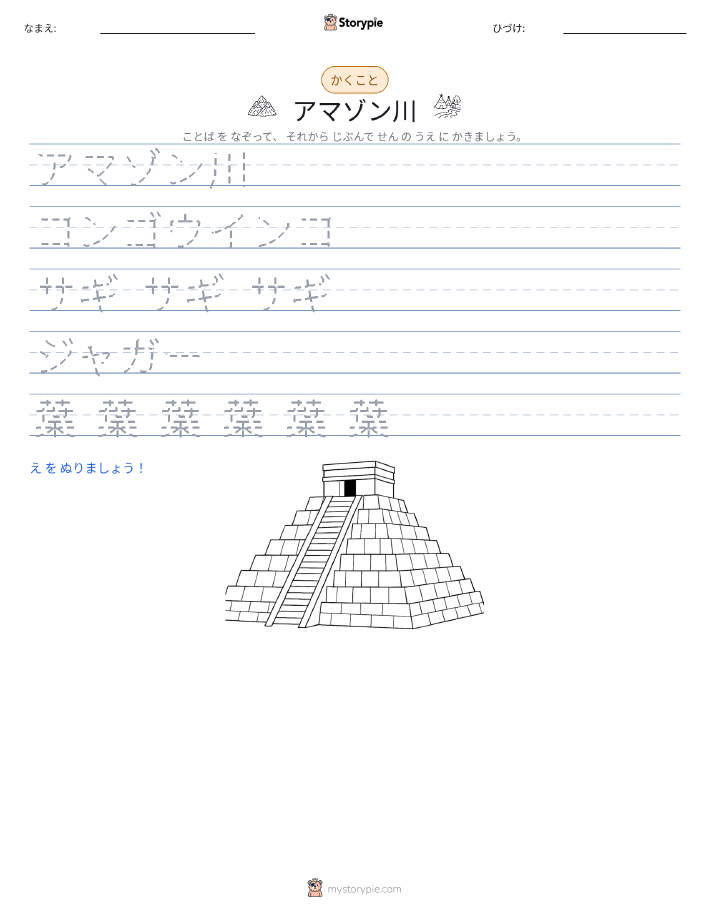 なまえ:
Storypie
ひづけ:
かくこと
アマゾン川
ことば を なぞって、 それから じぶんで せん の うえ に かきましょう。
アマゾン川
コンゴウインコ
サギ サギ サギ
ジャガー
葉 葉 葉 葉 葉 葉
え を ぬりましょう！
mystorypie.com